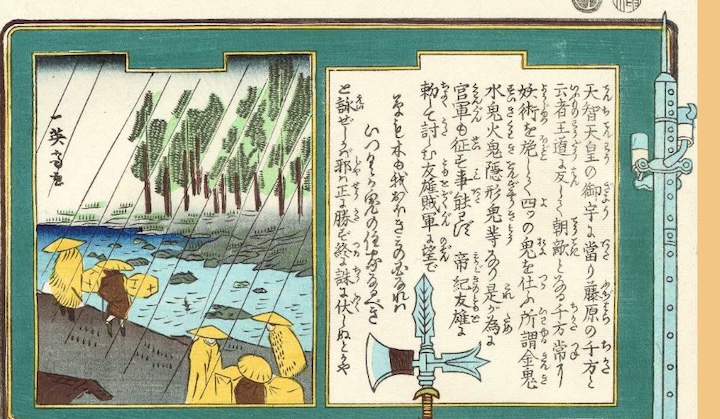 天智天皇の御宇に當り藤原の千方と
云者王道に反して朝敵となる千方常に
妖術を施して四ツの鬼を仕ふ所謂金鬼
水鬼火鬼隠形鬼等なり是が為に
官軍も征する事能はず 帝紀友雄に
勅して討しむ友雄賊軍に望で
草も木も我おほきみの国なれば
いづくか鬼の住家なるべき
と詠ぜしかば邪は正に勝ず終に誅に伏しぬとかや
一英斎画